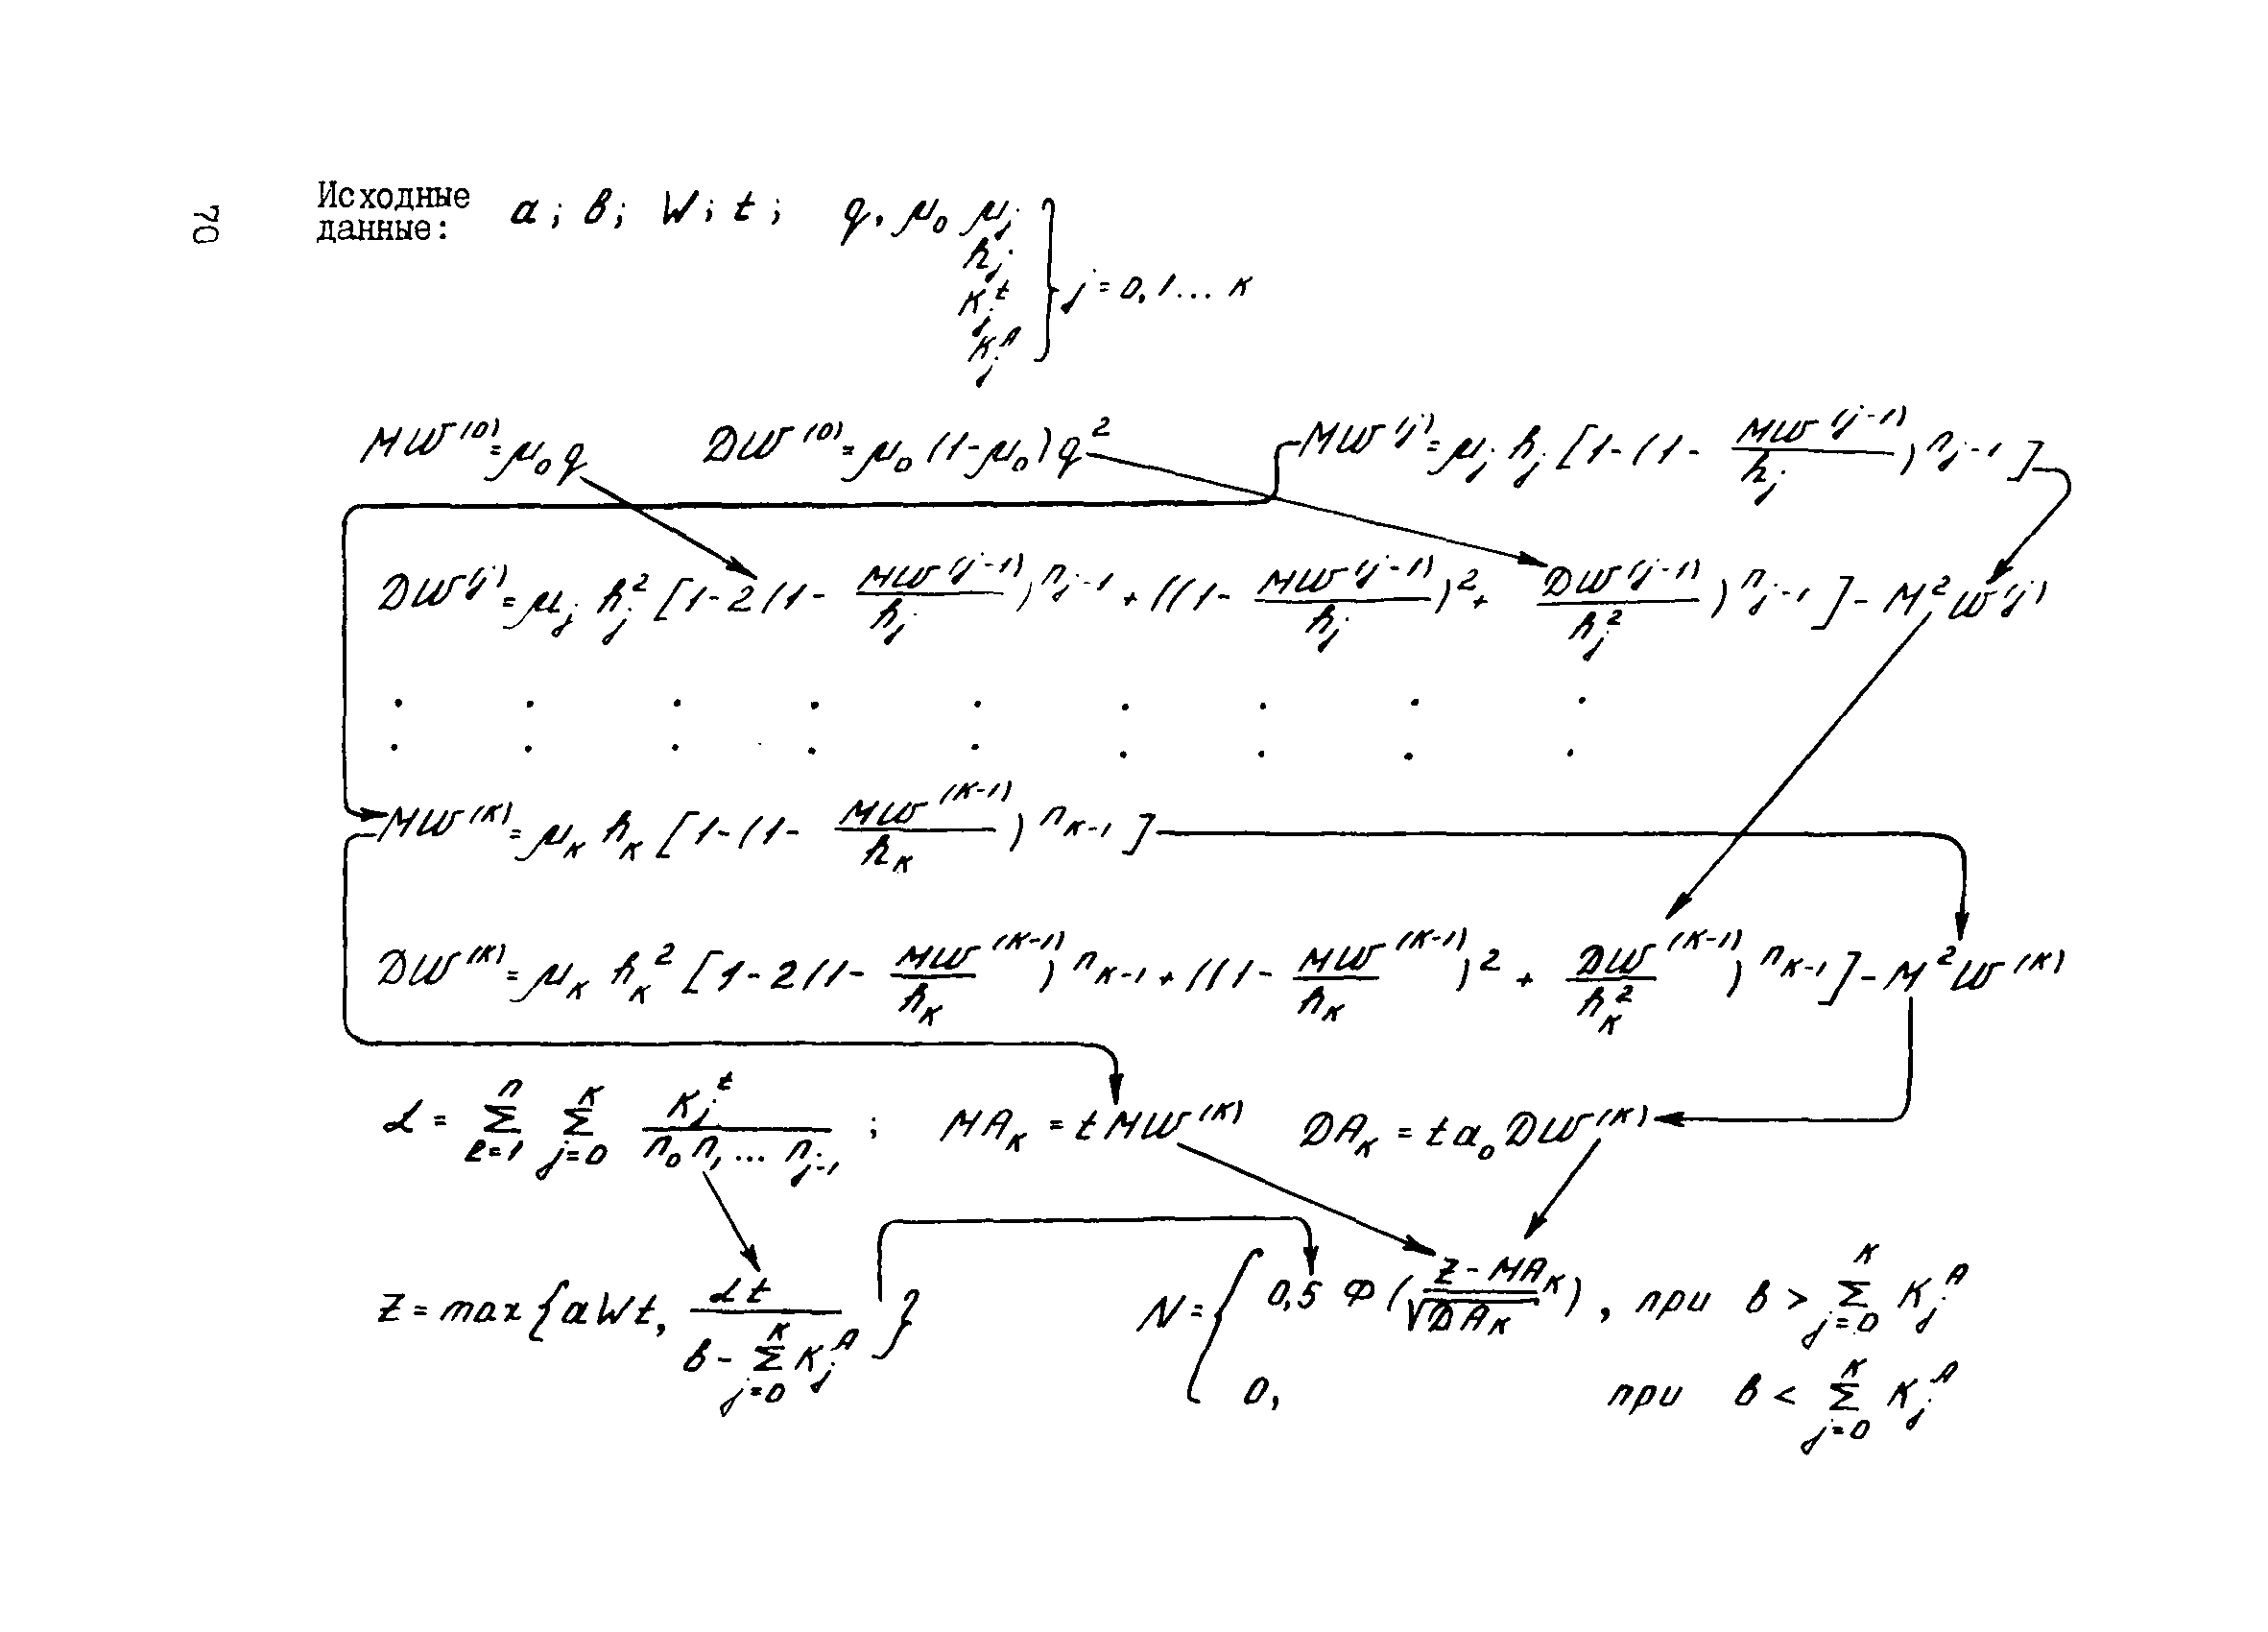 70
Исходные данные: a; в; W; t; q, μ₀ μⱼ
hⱼ
Kⱼᵗ
Kⱼᴬ
} j = 0, 1... к
MW⁽⁰⁾ = μ₀ q   DW⁽⁰⁾ = μ₀ (1-μ₀) q²   MW⁽ʲ⁾ = μⱼ hⱼ [1-(1- MW⁽ʲ⁻¹⁾/hⱼ)^{n_{j-1}}]
DW⁽ʲ⁾ = μⱼ hⱼ² [1-2(1- MW⁽ʲ⁻¹⁾/hⱼ)^{n_{j-1}} + ((1- MW⁽ʲ⁻¹⁾/hⱼ)² + DW⁽ʲ⁻¹⁾/hⱼ²)^{n_{j-1}}] - M²W⁽ʲ⁾
. . . . . . . . .
. . . . . . . . .
MW⁽ᴷ⁾ = μ_K h_K [1-(1- MW⁽ᴷ⁻¹⁾/h_K)^{n_{K-1}}]
DW⁽ᴷ⁾ = μ_K h_K² [1-2(1- MW⁽ᴷ⁻¹⁾/h_K)^{n_{K-1}} + ((1- MW⁽ᴷ⁻¹⁾/h_K)² + DW⁽ᴷ⁻¹⁾/h_K²)^{n_{K-1}}] - M²W⁽ᴷ⁾
α = Σ_{ℓ=1}^{n} Σ_{j=0}^{K} Kⱼᵗ/(n₀ n₁ ... n_{j-1}) ;   MA_K = t MW⁽ᴷ⁾   DA_K = t a₀ DW⁽ᴷ⁾
Z = max {aWt, αt/(в - Σ_{j=0}^{K} Kⱼᴬ)}   N = { 0,5 Ф((Z-MA_K)/√DA_K), при в > Σ_{j=0}^{K} Kⱼᴬ
0, при в < Σ_{j=0}^{K} Kⱼᴬ